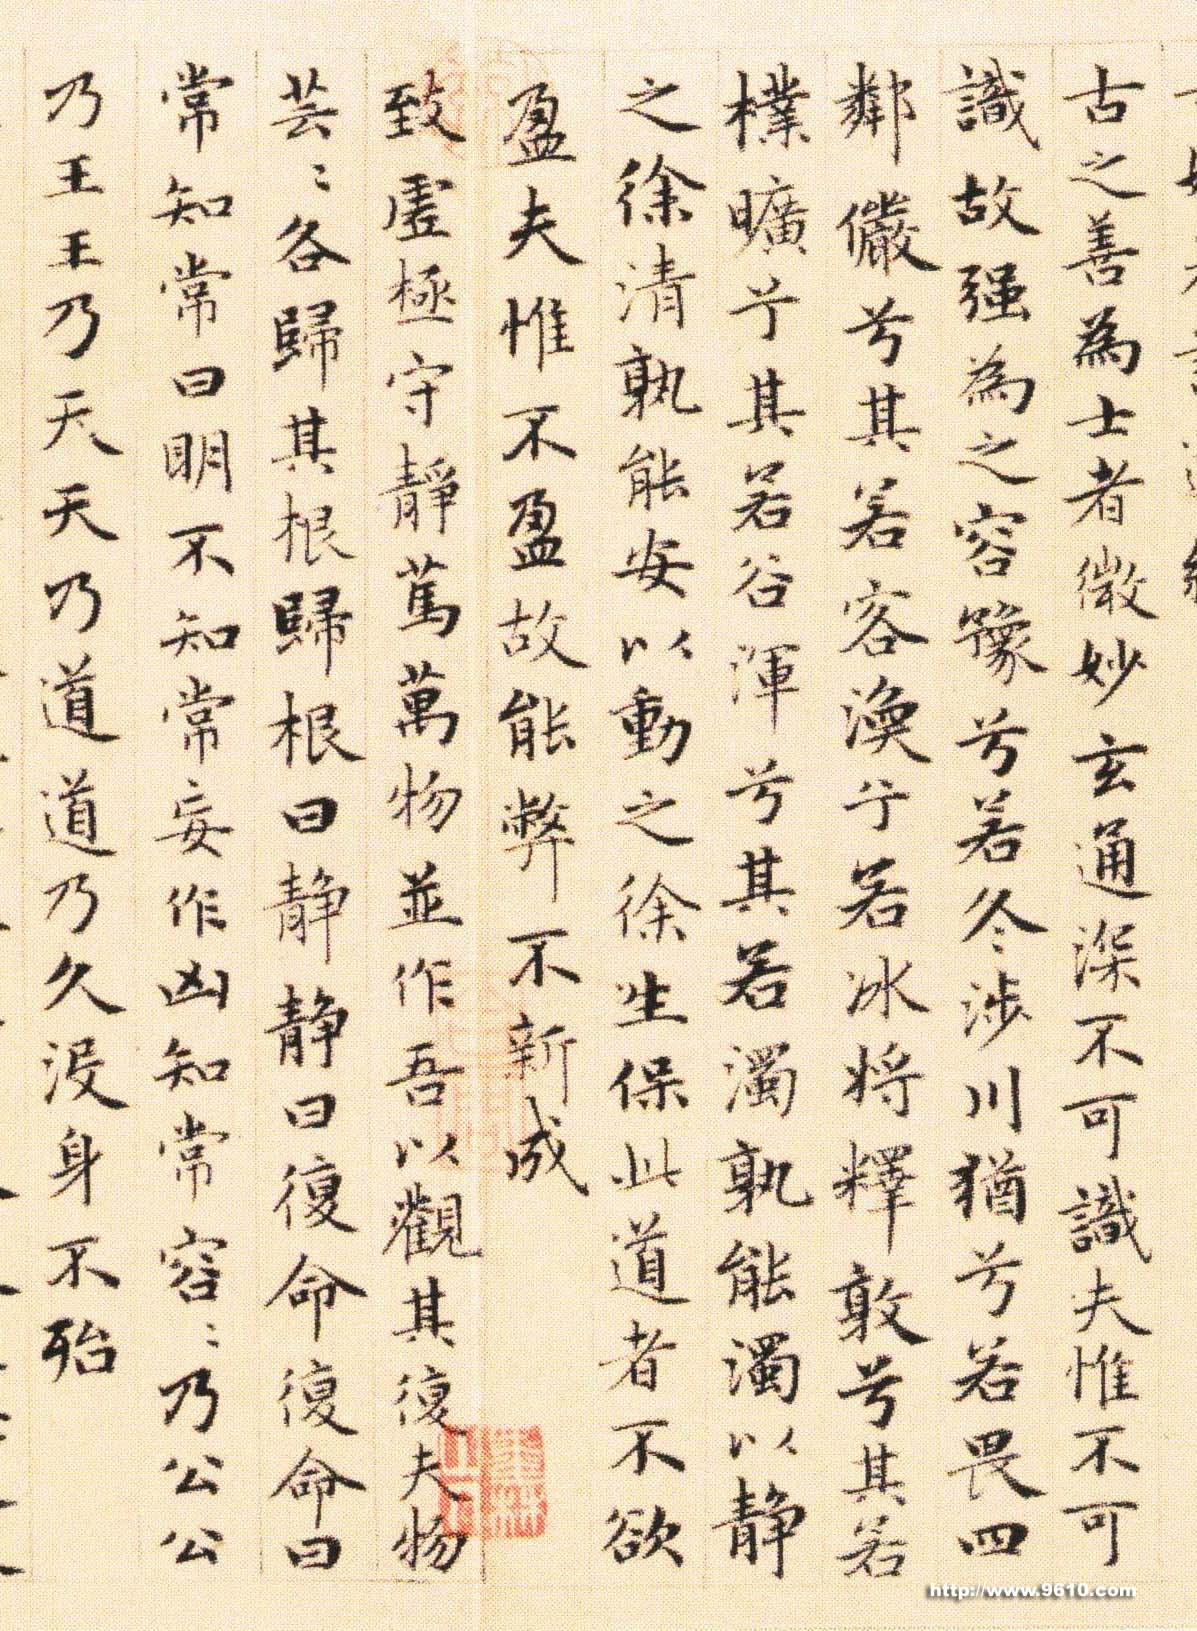 古之善為士者微妙玄通深不可識夫惟不可
識故强為之容豫兮若冬涉川猶兮若畏四
鄰儼兮其若客渙兮若冰將釋敦兮其若
樸曠兮其若谷渾兮其若濁孰能濁以静
之徐清孰能安以動之徐生保此道者不欲
盈夫惟不盈盈故能弊不新成
致虛極守靜篤萬物並作吾以觀其復夫物
芸〻各歸其根歸根曰静静曰復命復命曰
常知常曰明不知常妄作凶知常容〻乃公公
乃王王乃天天乃道道乃久沒身不殆
http://www.9610.com